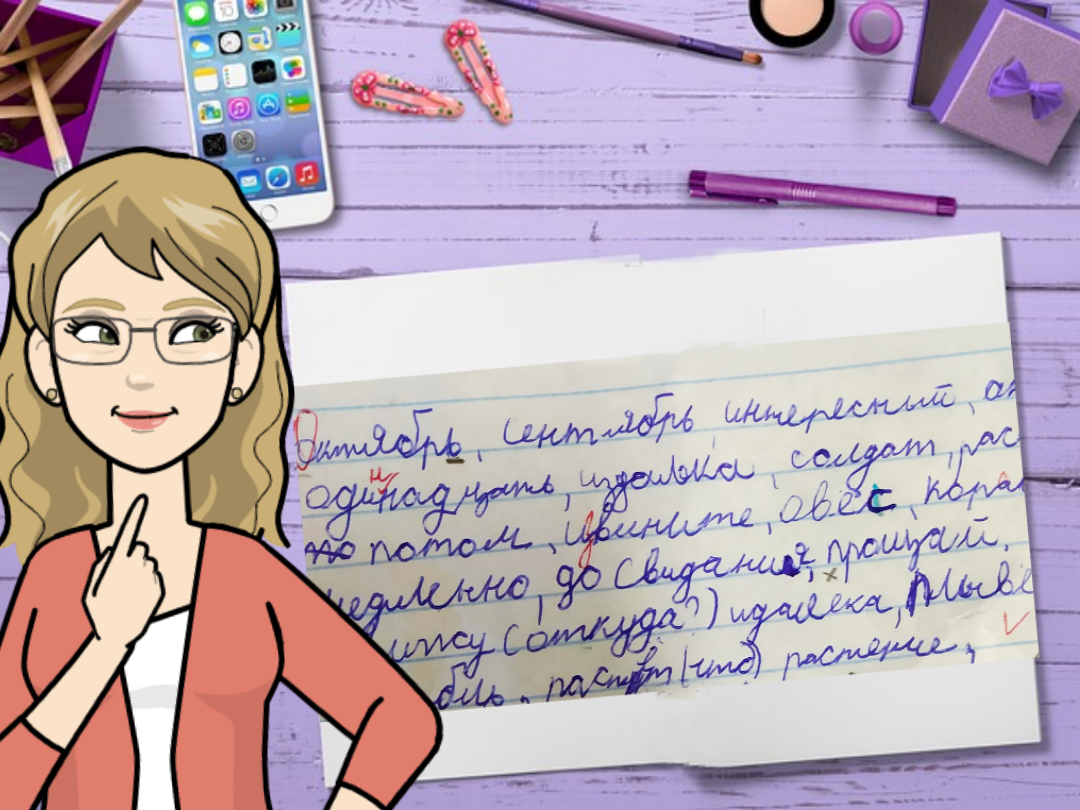 Октябрь, сентябрь, интересный,
одинадцать, издалька, солдат, рас
потом, извините, овес, кора
медленно, до свидания, прощай.
ижу (откуда?) издалека, плыве
бль, растёт (что) растение,